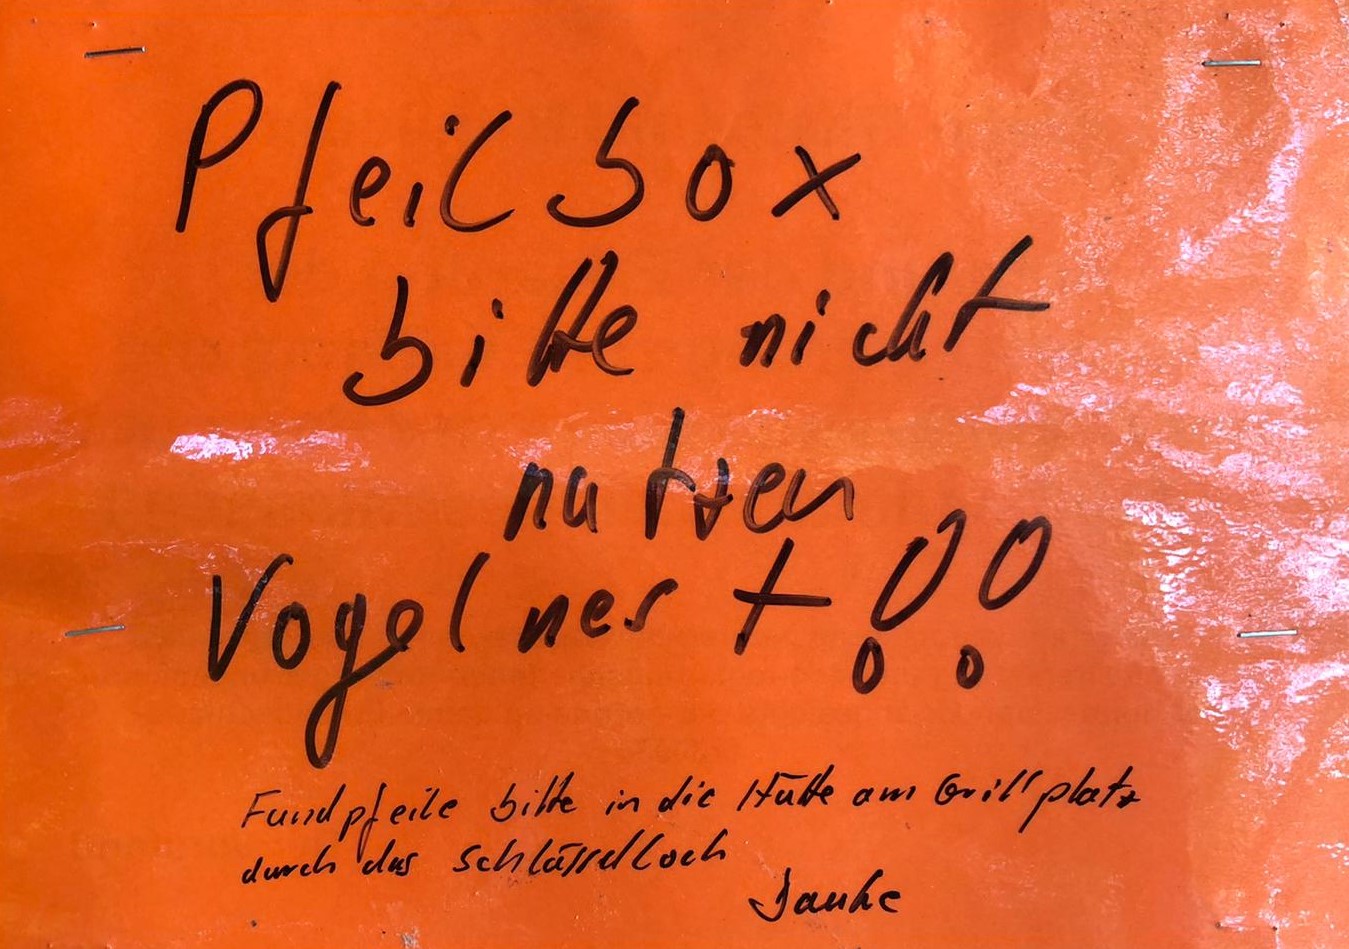 Pfeilbox
bitte nicht
nutzen
Vogelnest !!
Fundpfeile bitte in die Hütte am Grillplatz
durch das Schlüsselloch
Danke